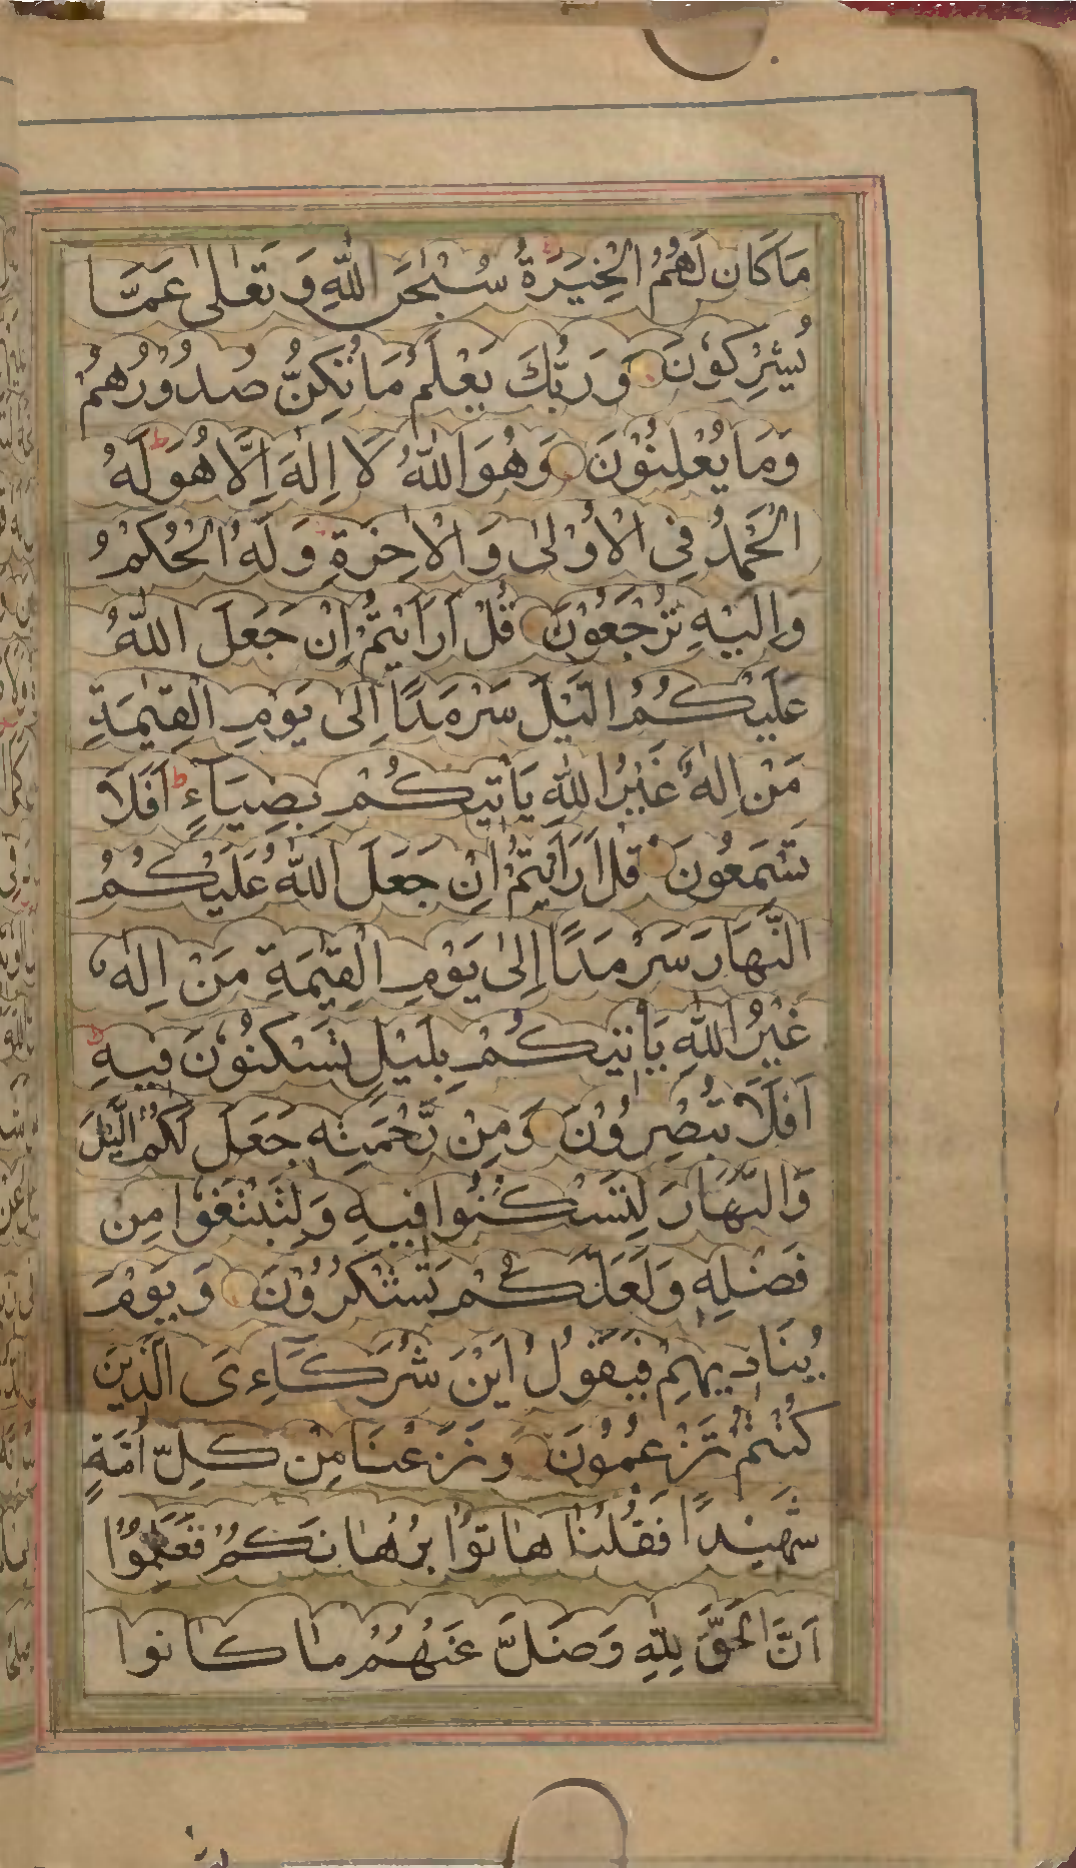 مَا كَانَ لَهُمُ الْخِيَرَةُ ط سُبْحٰنَ اللّٰهِ وَتَعٰلٰى عَمَّا
يُشْرِكُوْنَ وَرَبُّكَ يَعْلَمُ مَا تُكِنُّ صُدُوْرُهُمْ
وَمَا يُعْلِنُوْنَ وَهُوَ اللّٰهُ لَا اِلٰهَ اِلَّا هُوَ ط لَهُ
الْحَمْدُ فِى الْاُوْلٰى وَالْاٰخِرَةِ وَلَهُ الْحُكْمُ
وَاِلَيْهِ تُرْجَعُوْنَ قُلْ اَرَاَيْتُمْ اِنْ جَعَلَ اللّٰهُ
عَلَيْكُمُ الَّيْلَ سَرْمَدًا اِلٰى يَوْمِ الْقِيٰمَةِ
مَنْ اِلٰهٌ غَيْرُ اللّٰهِ يَاْتِيْكُمْ بِضِيَآءٍ ط اَفَلَا
تَسْمَعُوْنَ قُلْ اَرَاَيْتُمْ اِنْ جَعَلَ اللّٰهُ عَلَيْكُمُ
النَّهَارَ سَرْمَدًا اِلٰى يَوْمِ الْقِيٰمَةِ مَنْ اِلٰهٌ
غَيْرُ اللّٰهِ يَاْتِيْكُمْ بِلَيْلٍ تَسْكُنُوْنَ فِيْهِ ط
اَفَلَا تُبْصِرُوْنَ وَمِنْ رَّحْمَتِهٖ جَعَلَ لَكُمُ الَّيْلَ
وَالنَّهَارَ لِتَسْكُنُوْا فِيْهِ وَلِتَبْتَغُوْا مِنْ
فَضْلِهٖ وَلَعَلَّكُمْ تَشْكُرُوْنَ وَيَوْمَ
يُنَادِيْهِمْ فَيَقُوْلُ اَيْنَ شُرَكَآءِىَ الَّذِيْنَ
كُنْتُمْ تَزْعُمُوْنَ وَنَزَعْنَا مِنْ كُلِّ اُمَّةٍ
شَهِيْدًا فَقُلْنَا هَاتُوْا بُرْهَانَكُمْ فَعَلِمُوْا
اَنَّ الْحَقَّ لِلّٰهِ وَضَلَّ عَنْهُمْ مَا كَانُوا